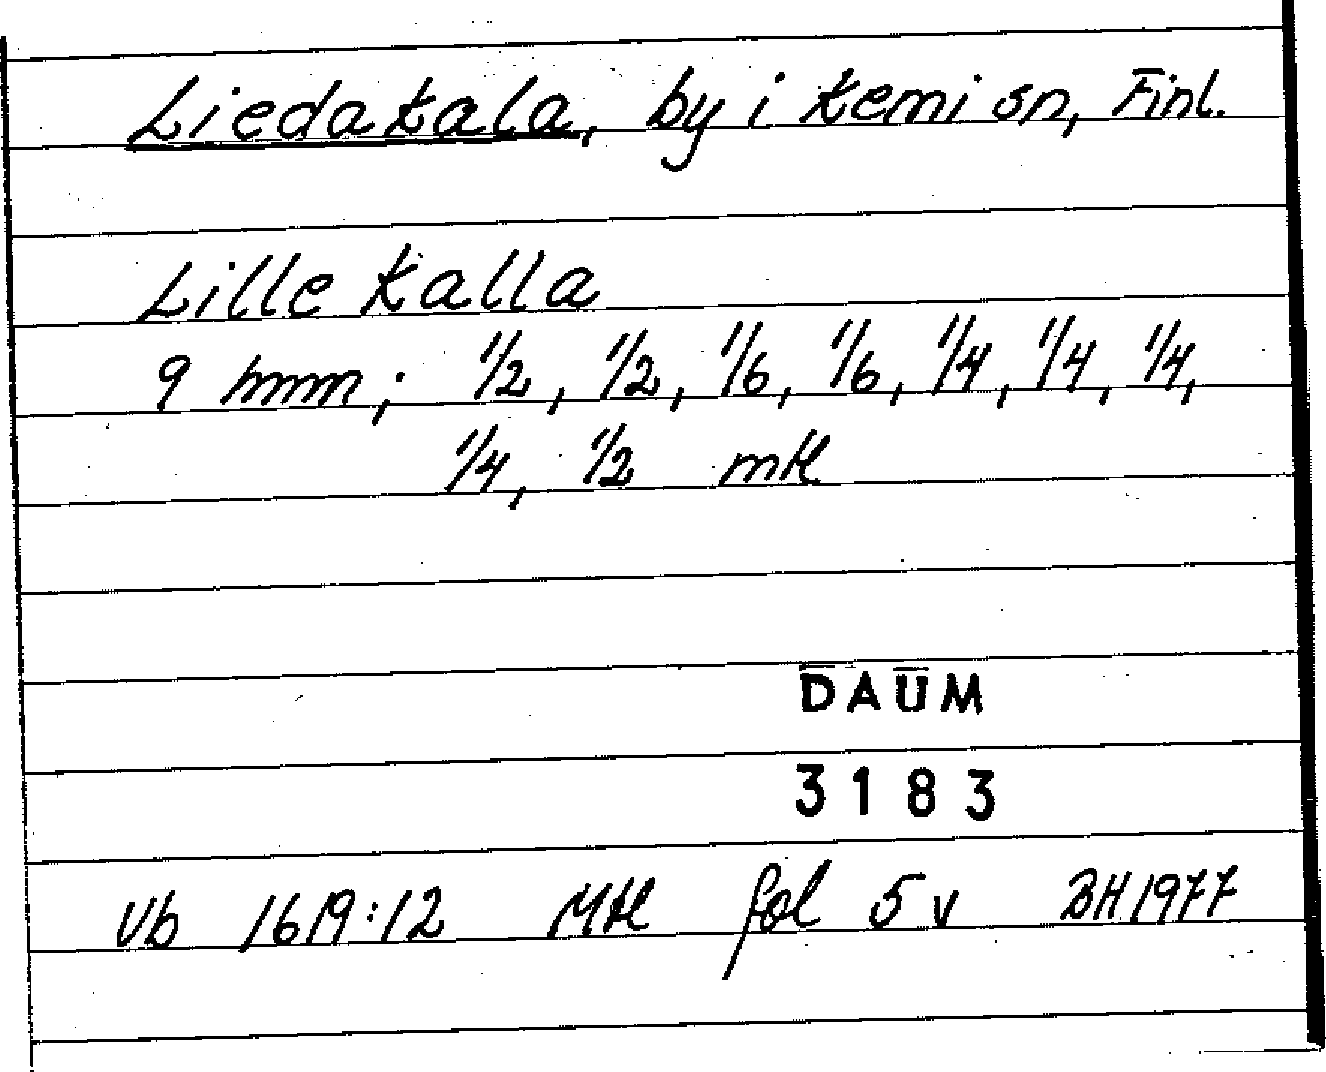 Liedakala, by i Kemi sn, Finl.
Lille Kalla
9 mm; 1/2, 1/2, 1/6, 1/6, 1/4, 1/4, 1/4,
1/4, 1/2 mtl
DAUM
3183
Vb 1619:12 Mtl fol 5 v BH 1977